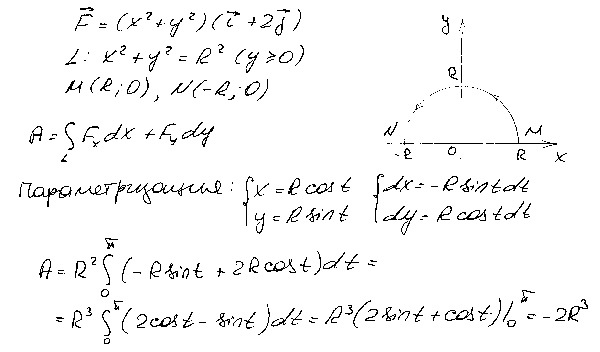 F⃗ = (x² + y²)(i⃗ + 2j⃗)
L: x² + y² = R² (y ≥ 0)
M(R; 0), N(-R; 0)
A = ∫_L F_x dx + F_y dy
y
R
N
M
-R
0
R
x
Параметризация: { x = R cos t { dx = -R sin t dt
y = R sin t dy = R cos t dt
A = R² ∫₀^π (-R sin t + 2R cos t) dt =
= R³ ∫₀^π (2 cos t - sin t) dt = R³ (2 sin t + cos t) |₀^π = -2R³